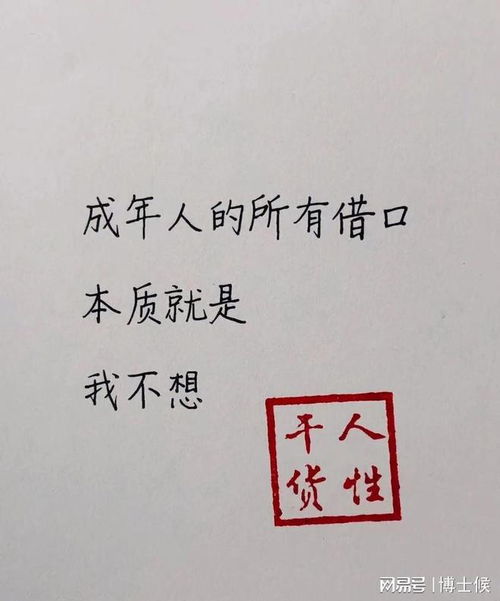 成年人的所有借口
本质就是
我不想
人性
干货
网易号 | 博士候